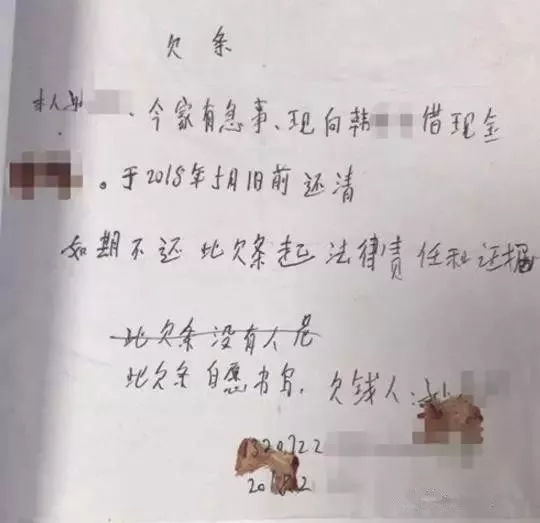 欠条
本人 、今家有急事、现向韩 借现金
。于2018年5月1日前还清
如期不还 此欠条起法律责任和证据
此欠条没有人
此欠条自愿书写. 欠钱人:
1320722
2018.2